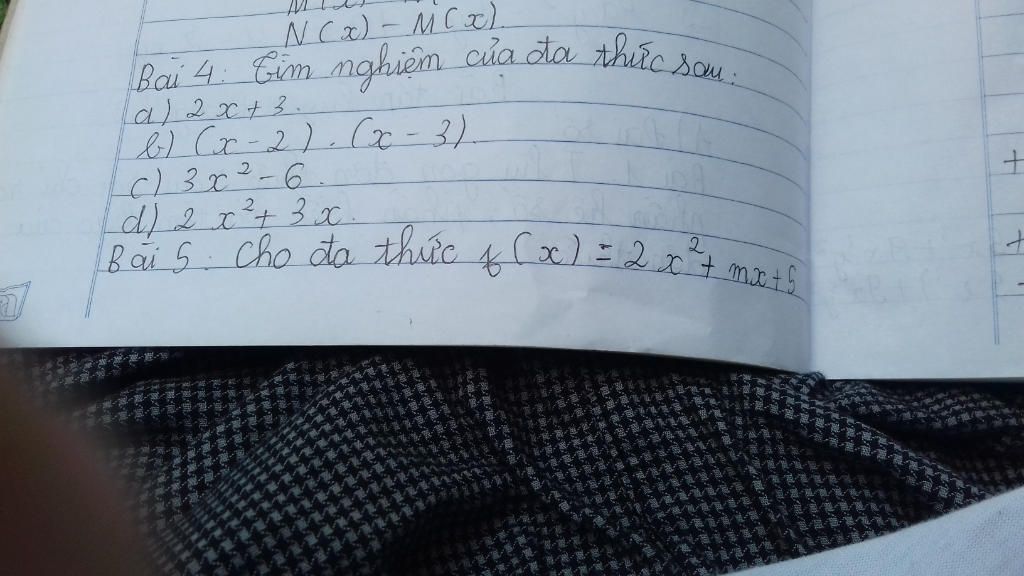 M(x)
N(x) - M(x).
Bài 4: Tìm nghiệm của đa thức sau:
a) 2x + 3.
b) (x - 2) . (x - 3).
c) 3x² - 6.
d) 2x² + 3x.
Bài 5: Cho đa thức f(x) = 2x² + mx + 5
+
+